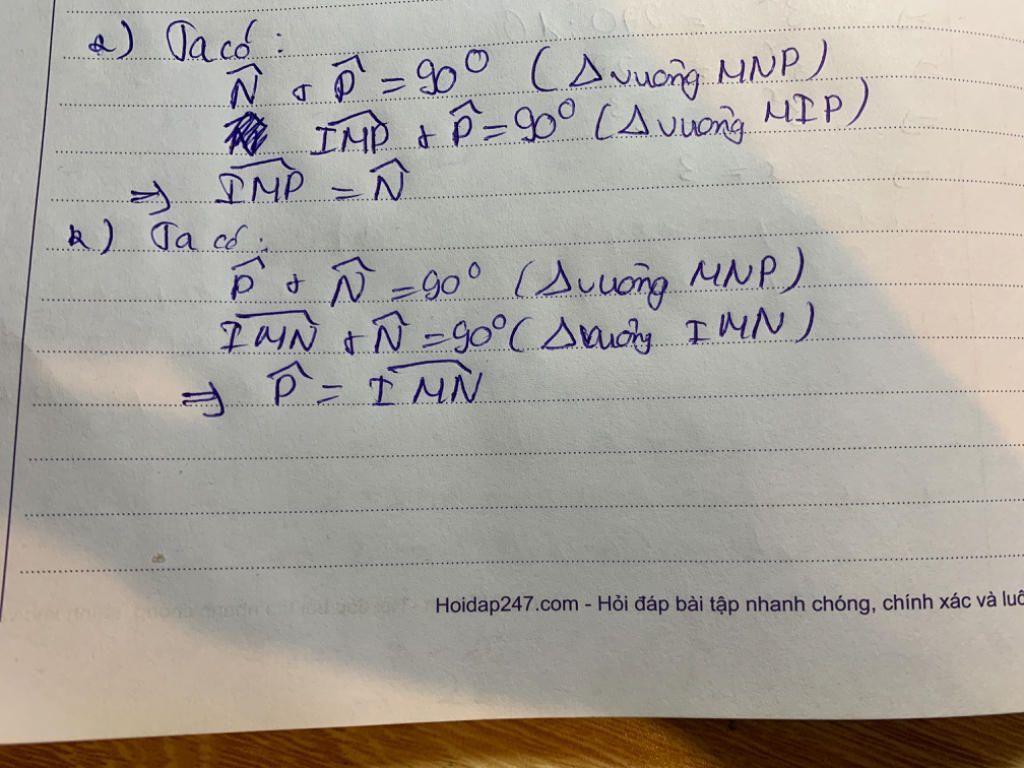 a) Ta có:
N̂ + P̂ = 90° (Δ vuông MNP)
IMP̂ + P̂ = 90° (Δ vuông MIP)
=> IMP̂ = N̂
b) Ta có:
P̂ + N̂ = 90° (Δ vuông MNP)
IMN̂ + N̂ = 90° (Δ vuông IMN)
=> P̂ = IMN̂
Hoidap247.com - Hỏi đáp bài tập nhanh chóng, chính xác và luô